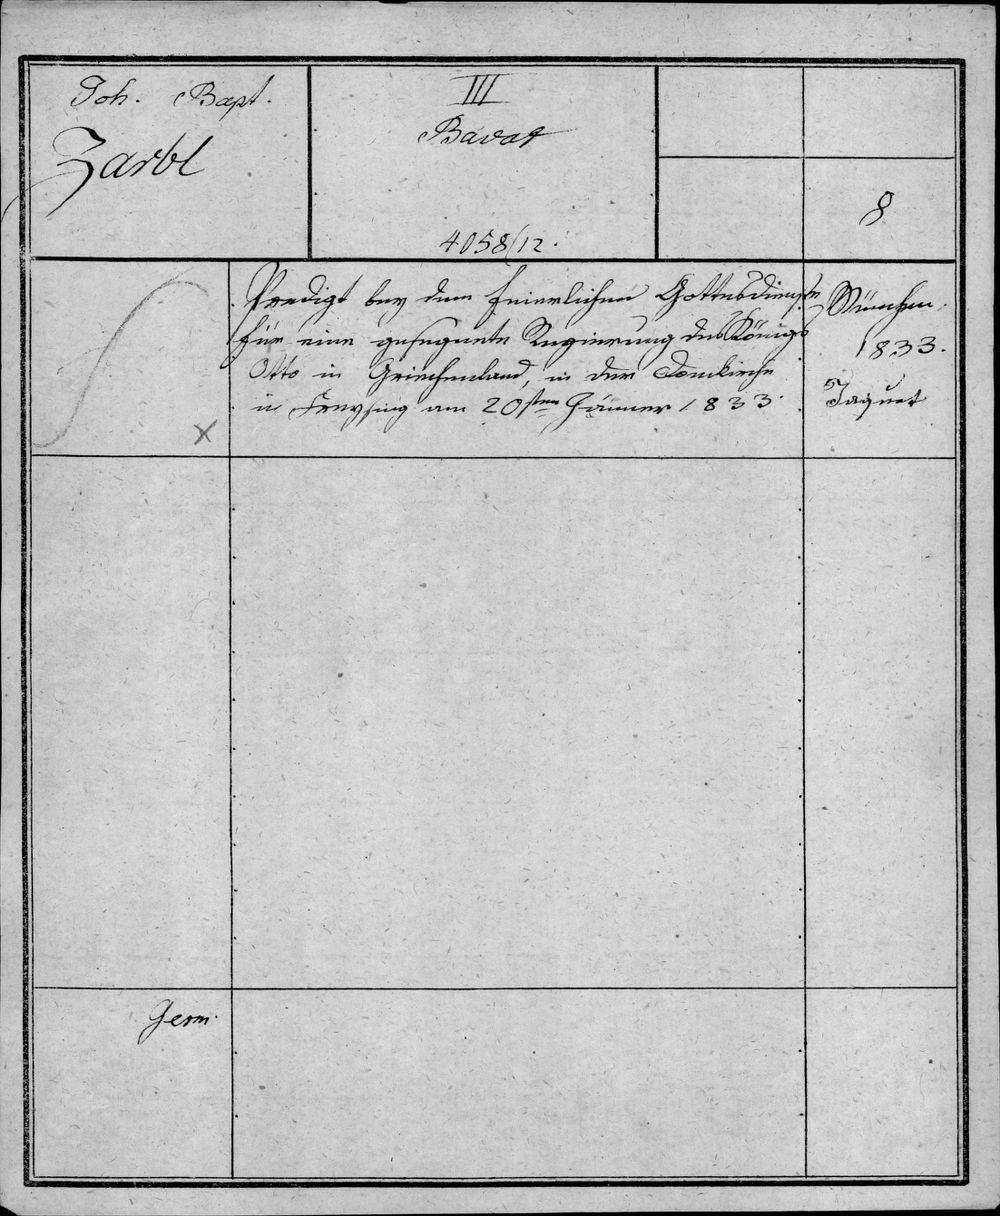 Joh. Bapt.
Zarbl
III
Bavar
4058/12.
8
Predigt bey dem feierlichen Gottesdienste
für eine gesegnete Regierung des Königs
Otto in Griechenland, in der Domkirche
in Freysing am 20sten Jänner 1833.
München
1833.
Jaquet
X
Germ.